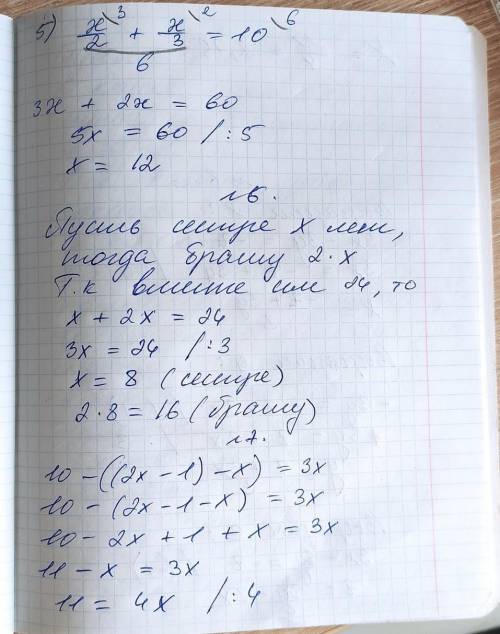 5) x/2 \3 + x/3 \2 = 10 \6
6
3x + 2x = 60
5x = 60 /:5
x = 12
№6.
Пусть сестре x лет,
тогда брату 2·x
Т.к вместе им 24, то
x + 2x = 24
3x = 24 /:3
x = 8 (сестре)
2·8 = 16 (брату)
№7.
10 - ((2x - 1) - x) = 3x
10 - (2x - 1 - x) = 3x
10 - 2x + 1 + x = 3x
11 - x = 3x
11 = 4x /:4